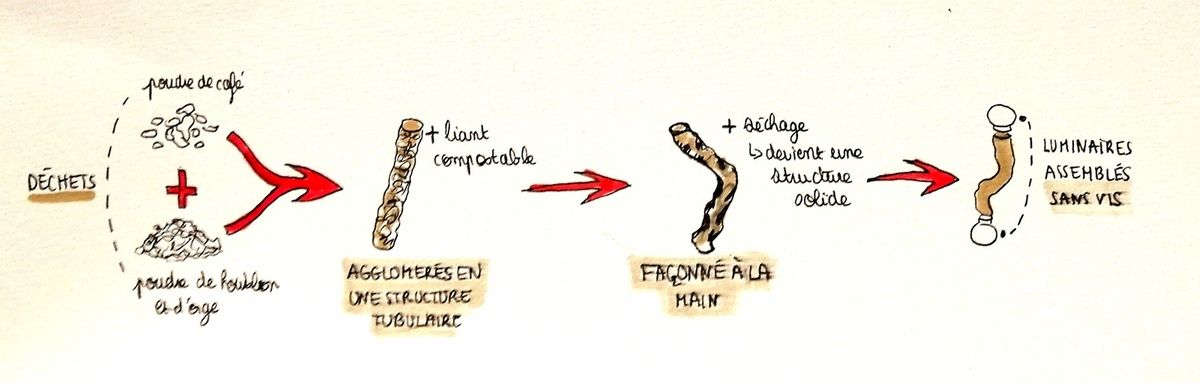 DÉCHETS
poudre de café
+
poudre de houblon
et d'orge
+ liant
compostable
AGGLOMERÉS EN
UNE STRUCTURE
TUBULAIRE
+ séchage
↳ devient une
structure
solide
FAÇONNÉ À LA
MAIN
LUMINAIRES
ASSEMBLÉS
SANS VIS